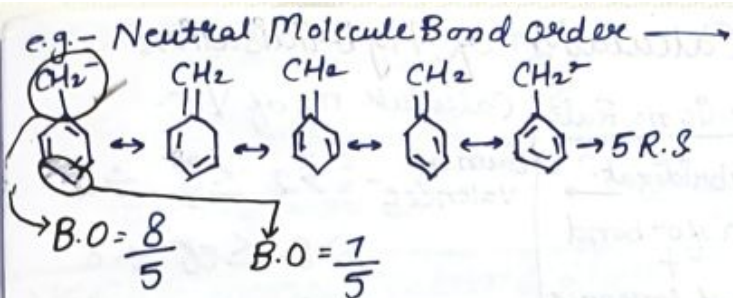 e.g.- Neutral Molecule Bond order →
CH2⁻ CH2 CH2 CH2 CH2⁻
↔ ↔ ↔ ↔ → 5 R.S
B.O = 8/5 B.O = 7/5